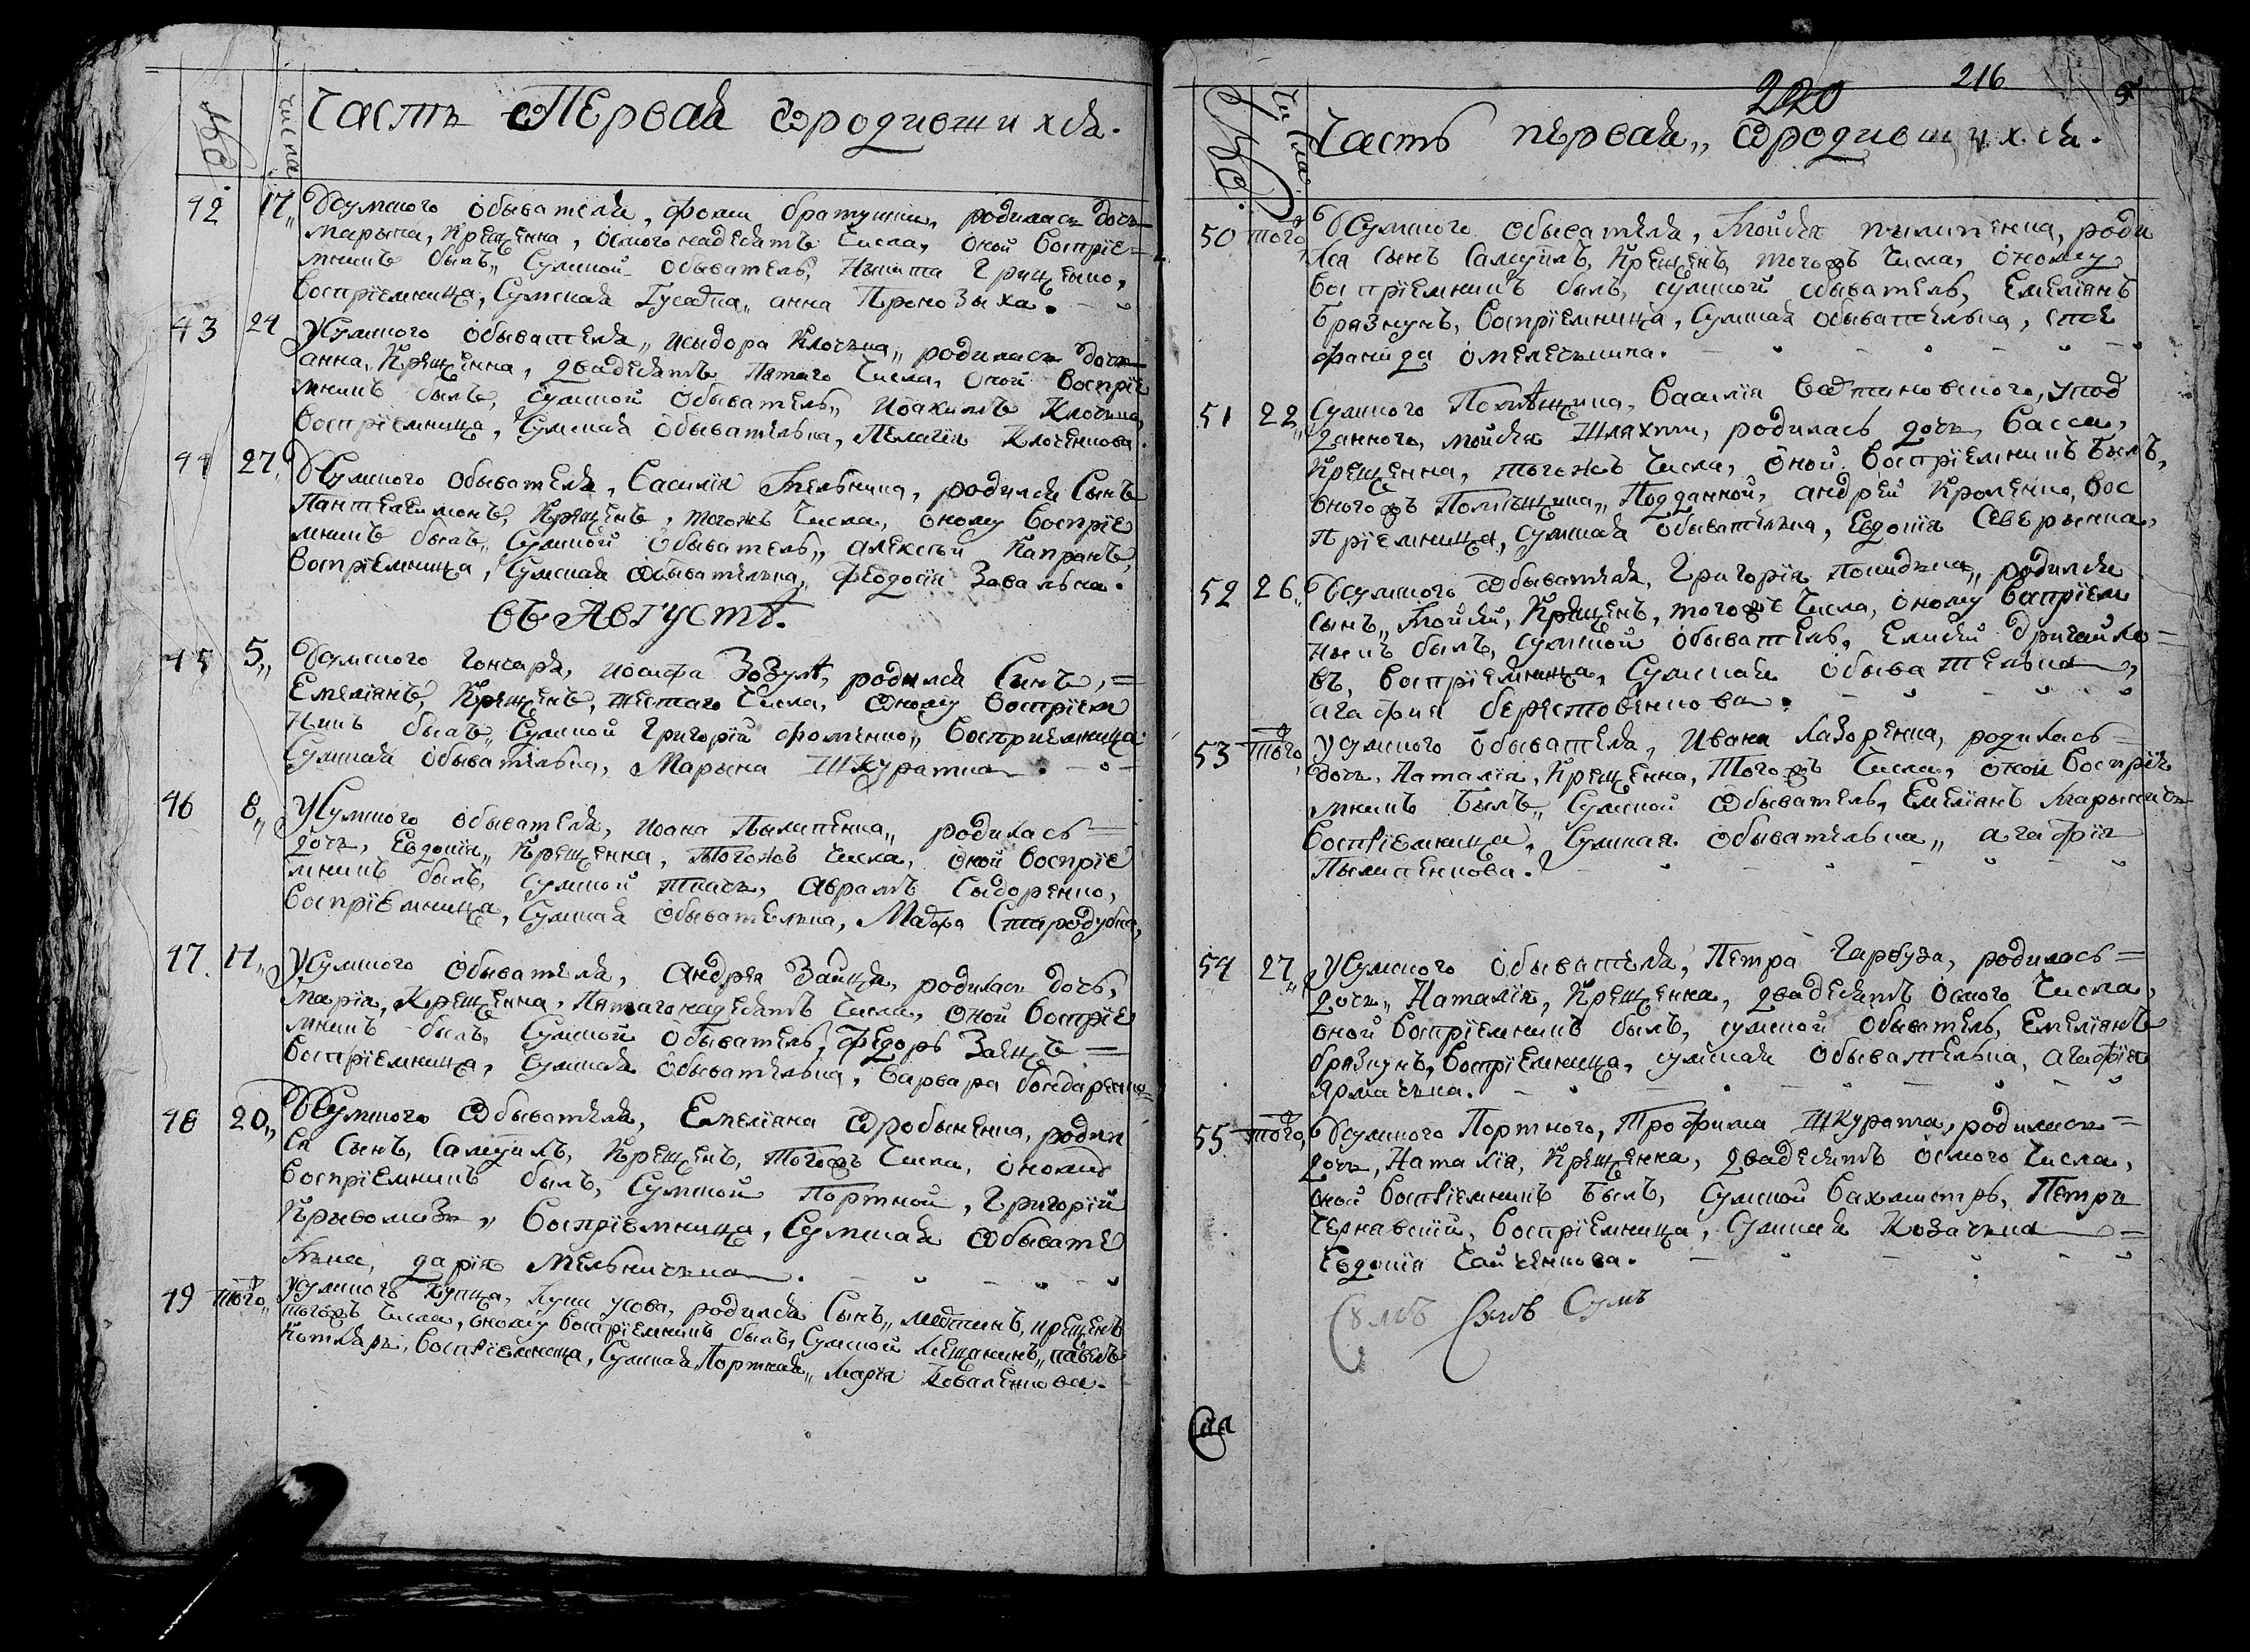 №
числа
Часть Первая ѡродившихся.
42 17„ Усумского обывателя, фомы братушки„ родилась дочь
марына, крещенна, осмогонадесять числа, оной воспріе=
мникъ былъ„ Сумской обыватель, Никита Грищенко,
воспріемница, Сумская Гусарка„ анна Перековыха.
43 24 Усумского обывателя„ исыдора Ключька„ родилась дочь
анна, Крещенна, двадесять пятаго числа, оной воспріе
мникъ былъ, сумской обыватель„ Иоакимъ Клочко,
воспріемница, Сумская обывателька, Пелагія Клоченкова.
44 27„ Усумского обывателя, Василія Мельника, родился Сынъ
Пантелеимонъ, Крещенъ, тогожъ числа, оному воспріе
мникъ былъ„ Сумской обыватель„ алексѣй Капранъ,
воспріемница, Сумская ѡбывателька, феодосія Завалька.
въ Августѣ.
45 5„ Усумского гончаря, иосифа Зозулѣ, родился Синъ, =
Емеліянъ, Крещенъ, шестаго числа, ѡному воспріем
никъ былъ„ Сумской Григорій фоменко„ Восприемница
Сумская обывателька, Марына Шкуратка.
46 8„ Усумского обывателя, иоана Пылипенка„ родилась =
дочъ, Евдокія„ Крещенна, тогожъ числа, оной воспріе
мникъ былъ, Сумской ткачь, Аврамъ Сыдоренко,
воспріемница, Сумская обывателька, Мавра Стародубка,
47. 11„ Усумского обывателя, Андрея Зайца, родилась дочь,
Марія, Крещенна, Пятагонадесять числа, оной воспріе
мникъ былъ, Сумской обыватель, Федоръ Заецъ =
воспріемница, Сумская обывателька, варвара бондаренко=
48 20„ Усумского ѡбывателя, Емеліяна ѡробыненка, родил
ся Сынъ, Самуилъ, Крещенъ, тогожъ числа, ономꙋ
воспріемникъ былъ, Сумской Портной, Григорій
Крывомазъ„ Воспріемница, Сумская ѡбывате
лька, дарія Мельничька.
49 того„ Усумского Купца, Кумы усова, родился Сынъ„ мартинъ, крещенъ
тогожъ числа, оному воспріемникъ былъ, Сумской мещанинъ„ павелъ
Котляръ, воспріемница, Сумская Портная„ марія Коваленкова.
220 216
№
Числа.
Часть первая„ ѡродившихся.
50 того„ Усумского обывателя, Мойсея пылипенка, роди
лся Сынъ Самуилъ, Крещенъ, тогожъ числа, оному
воспріемникъ былъ, сумской обыватель, Емеліянъ
брязкунъ, воспріемница, Сумская обывателька, сте
фанида омелечькина.
51 22„ Сумского Помѣщика, Василія, упод
данного, мойсея Шляхты, родилась дочь, Васса,
Крещенна, тогожъ числа, оной воспріемникъ былъ,
оногожъ Помѣщика„ Подданной, андрей Кроленко, вос
пріемница, сумская обывателька, Евдокія Северынка,
52 26„ Усумского ѡбывателя, Григорія Покидька„ родился
Сынъ„ Мойсей, Крещенъ, тогожъ числа, оному воспріем
никъ былъ, сумской обыватель, Елисей дригайло=
въ, воспріемница, Сумская обывателька,
агафия берестовенкова.
53 того, Усумского обывателя, Ивана лазоренка, родилась =
дочь, Наталія, Крещенна, Тогожъ числа, оной воспріе
мникъ былъ„ Сумской ѡбыватель, Емеліянъ
воспріемница, Сумская обывателька„ агафія
Пылипенкова.
54 27„ Усумского обывателя, Петра Гарбуза, родилась =
дочь„ Наталія, Крещенна, двадесять осмого числа,
оной воспріемникъ былъ, сумской обыватель, Емеліянъ
брязкунъ, воспріемница, сумская обывателька, агафія
Ярмачька.
55. того, Усумского Портного, Трофима Шкурата, родилась =
дочь, Наталія, Крещенна, двадесять осмого числа,
оной воспріемникъ былъ, Сумской вахмистръ, Петръ
чернавскій, воспріемница, Сумская Козачька =
Евдокія Сайченкова.